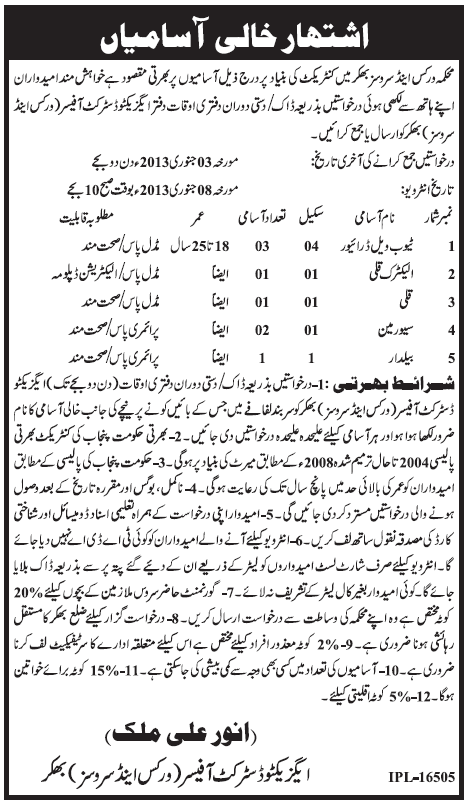 اشتہار خالی آسامیاں
محکمہ ورکس اینڈ سروسز بھکر میں کنٹریکٹ کی بنیاد پر درج ذیل آسامیوں پر بھرتی مقصود ہے خواہش مند امیدواران
اپنے ہاتھ سے لکھی ہوئی درخواستیں بذریعہ ڈاک/ دستی دوران دفتری اوقات دفتر ایگزیکٹو ڈسٹرکٹ آفیسر (ورکس اینڈ
سروسز) بھکر کو ارسال یا جمع کرائیں۔
درخواستیں جمع کرانے کی آخری تاریخ: مورخہ 03 جنوری 2013ء دن دو بجے
تاریخ انٹرویو: مورخہ 08 جنوری 2013ء بوقت صبح 10 بجے
نمبر شمار نام آسامی سکیل تعداد آسامی عمر مطلوبہ قابلیت
1 ٹیوب ویل ڈرائیور 04 03 18 تا 25 سال مڈل پاس/صحت مند
2 الیکٹرک قلی 01 01 ایضاً مڈل پاس/الیکٹریشن ڈپلومہ
3 قلی 01 01 ایضاً مڈل پاس/صحت مند
4 سیور مین 01 02 ایضاً پرائمری پاس/صحت مند
5 بیلدار 1 1 ایضاً پرائمری پاس/صحت مند
شرائط بھرتی: 1- درخواستیں بذریعہ ڈاک/ دستی دوران دفتری اوقات (دن دو بجے تک) ایگزیکٹو
ڈسٹرکٹ آفیسر (ورکس اینڈ سروسز) بھکر کو سر بند لفافے میں جس کے بائیں کونے پر نیچے کی جانب خالی آسامی کا نام
ضرور لکھا ہوا ہو اور ہر آسامی کیلئے علیحدہ علیحدہ درخواستیں دی جائیں۔ 2- بھرتی حکومت پنجاب کی کنٹریکٹ بھرتی
پالیسی 2004 تا حال ترمیم شدہ 2008ء کے مطابق میرٹ کی بنیاد پر ہوگی۔ 3- حکومت پنجاب کی پالیسی کے مطابق
امیدواران کو عمر کی بالائی حد میں پانچ سال تک کی رعایت ہوگی۔ 4- نامکمل، بوگس اور مقررہ تاریخ کے بعد وصول
ہونے والی درخواستیں مسترد کر دی جائیں گی۔ 5- امیدوار اپنی درخواست کے ہمراہ تعلیمی اسناد ڈومیسائل اور شناختی
کارڈ کی مصدقہ نقول ساتھ لف کریں۔ 6- انٹرویو کیلئے آنے والے امیدواران کو کوئی ٹی اے ڈی اے نہیں دیا جائے
گا۔ انٹرویو کیلئے صرف شارٹ لسٹ امیدواروں کو لیٹر کے ذریعے ان کے دیئے گئے پتہ پر سے بذریعہ ڈاک بلایا
جائے گا۔ کوئی امیدوار بغیر کال لیٹر کے تشریف نہ لائے۔ 7- گورنمنٹ حاضر سروس ملازمین کے بچوں کیلئے 20%
کوٹہ مختص ہے وہ اپنے محکمہ کی وساطت سے درخواست ارسال کریں۔ 8- درخواست گزار کیلئے ضلع بھکر کا مستقل
رہائشی ہونا ضروری ہے۔ 9- 2% کوٹہ معذور افراد کیلئے مختص ہے اس کیلئے متعلقہ ادارے کا سرٹیفکیٹ لف کرنا
ضروری ہے۔ 10- آسامیوں کی تعداد میں کسی بھی وجہ سے کمی بیشی کی جاسکتی ہے۔ 11- 15% کوٹہ برائے خواتین
ہوگا۔ 12- 5% کوٹہ اقلیتی کیلئے۔
(انور علی ملک)
ایگزیکٹو ڈسٹرکٹ آفیسر (ورکس اینڈ سروسز) بھکر
IPL-16505